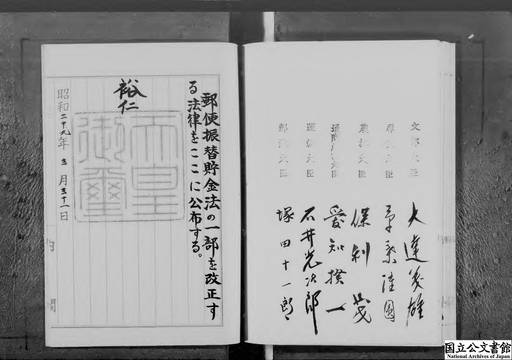 文部大臣 大達茂雄
厚生大臣 草葉隆圓
農林大臣 保利茂
通商産業大臣 愛知揆一
運輸大臣 石井光次郎
郵政大臣 塚田十一郎
郵便振替貯金法の一部を改正す
る法律をここに公布する。
裕仁
天皇
御璽
昭和二十九年三月三十一日
国立公文書館
National Archives of Japan